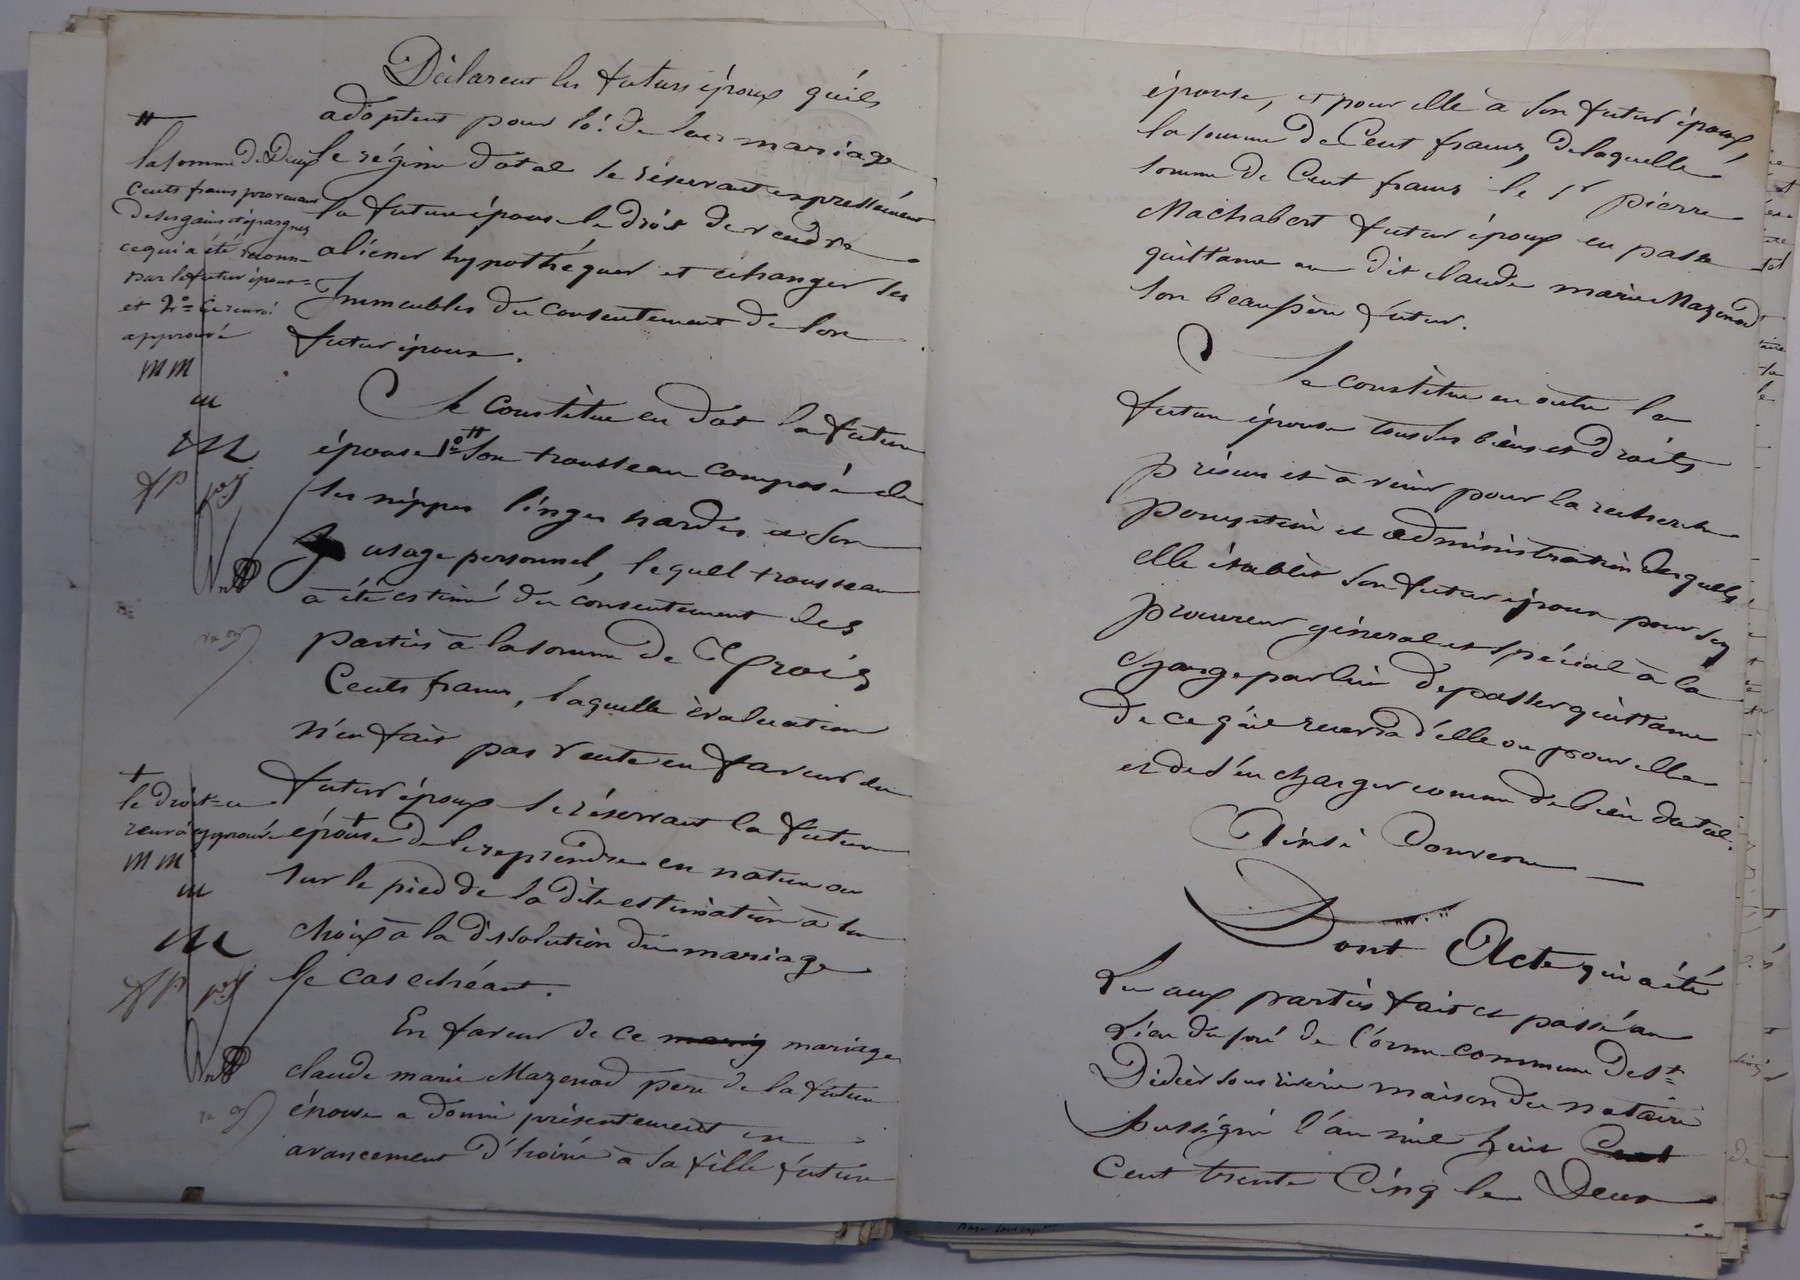 Déclarent les futurs époux qu'ils
adoptent pour loi de leur mariage
le régime dotal se réservant expressément
la future épouse le droit de vendre
aliéner hypothéquer et échanger ses
Immeubles du consentement de son
futur époux.
Se constitue en dot la future
épouse 1º # son trousseau composé de
ses nippes linges hardes et son
usage personnel, lequel trousseau
a été estimé du consentement des
parties à la somme de Trois
Cents francs, laquelle évaluation
n'en fait pas vente en faveur du
futur époux se réservant la future
épouse + de le reprendre en nature ou
sur le pied de la dite estimation à son
choix à la dissolution du mariage
le cas échéant.
En faveur de ce mariage
claude marie Mazenod père de la future
épouse a donné présentement en
avancement d'hoirie à sa fille future
#
la somme de Deux
Cents francs provenant
de ses gains et épargnes
ce qui a été reconnu
par le futur époux
et 2º= Ce renvoi
approuvé
m m
m
M
+
le droit = ce
renvoi approuvé
m m
m
M
épouse, et pour elle à son futur époux,
la somme de Cent francs, de laquelle
somme de Cent francs le Sr pierre
Machabert futur époux en passe
quittance au dit claude marie Mazenod
son beaupère futur.
Se constitue en outre la
future épouse tous ses biens et droits
présens et à venir pour la recherche
poursuite et administration desquels
elle établit son futur époux pour son
procureur général et spécial à la
charge par lui de passer quittance
de ce qu'il recevra d'elle ou pour elle
et de s'en charger comme de bien dotal.
Ainsi Convenu
Dont Acte qui a été
Lu aux parties fait et passé au
Lieu du pré de l'orme commune de St=
Didier sous riverie maison du notaire
soussigné l'an mil huit Cent
Cent trente Cinq le Deux